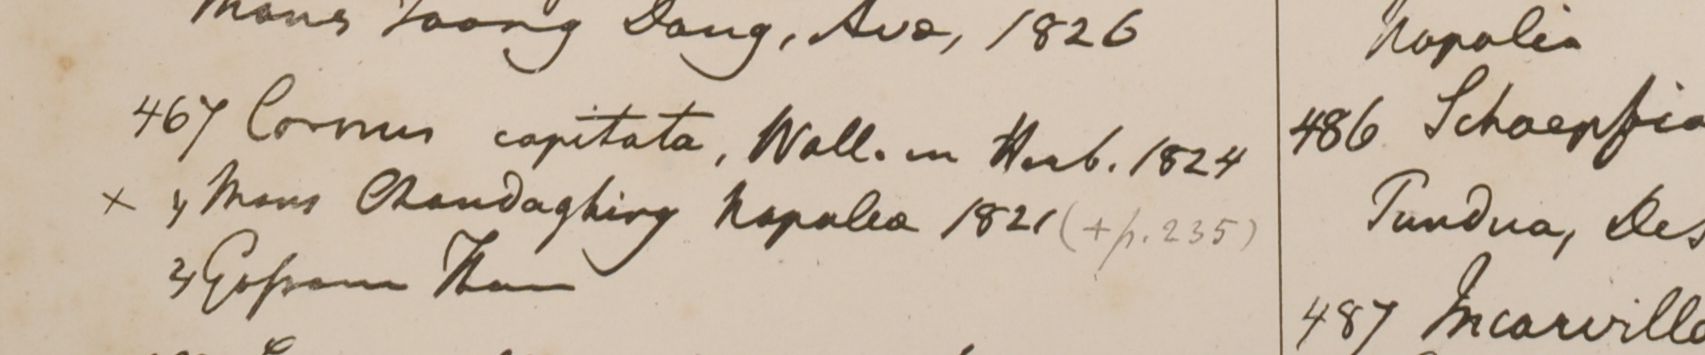 Mons Taong Dong, Ava, 1826
467 Cornus capitata, Wall. in Herb. 1824
x 1/ Mons Chandaghiry Napalia 1821 (+ p. 235)
2/ Gossam Than
Napalia
486 Schoepfia
Pundua, Des
487 Incarville